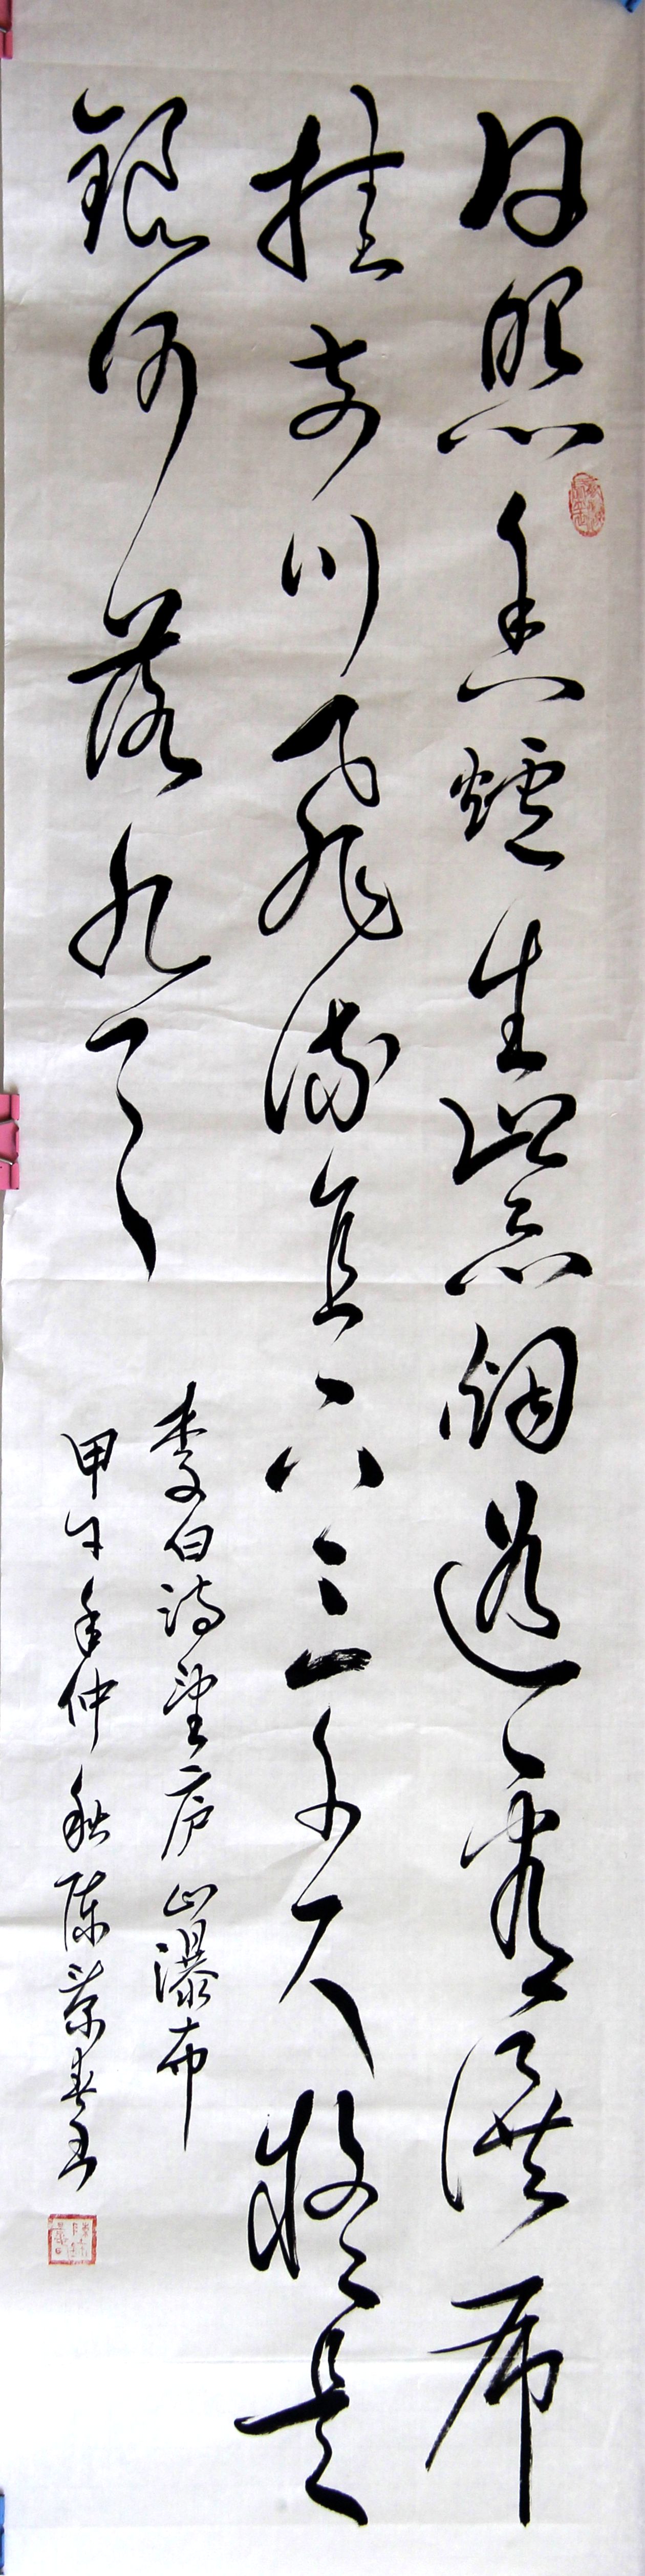 日照香爐生紫烟遥看瀑布
挂前川飛流直下三千尺疑是
銀河落九天
李白诗望庐山瀑布
甲午年仲秋陈荣春书